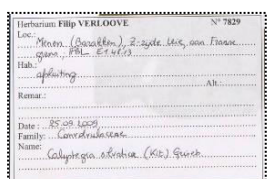 Herbarium Filip VERLOOVE N° 7829
Loc.: Menen (Barakken), Z-zijde Leie, aan Franse
grens, IFBL E1.48.13
Hab.: afsluiting
Alt.:
Remar.:
Date : 25.09.2009
Family: Convolvulaceae
Name:
Calystegia silvatica (Kit.) Griseb.